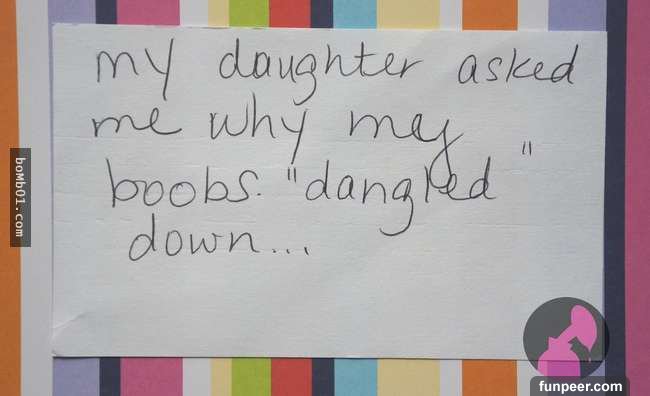 my daughter asked
me why my
boobs. "dangled"
down...
boMb01.com
funpeer.com